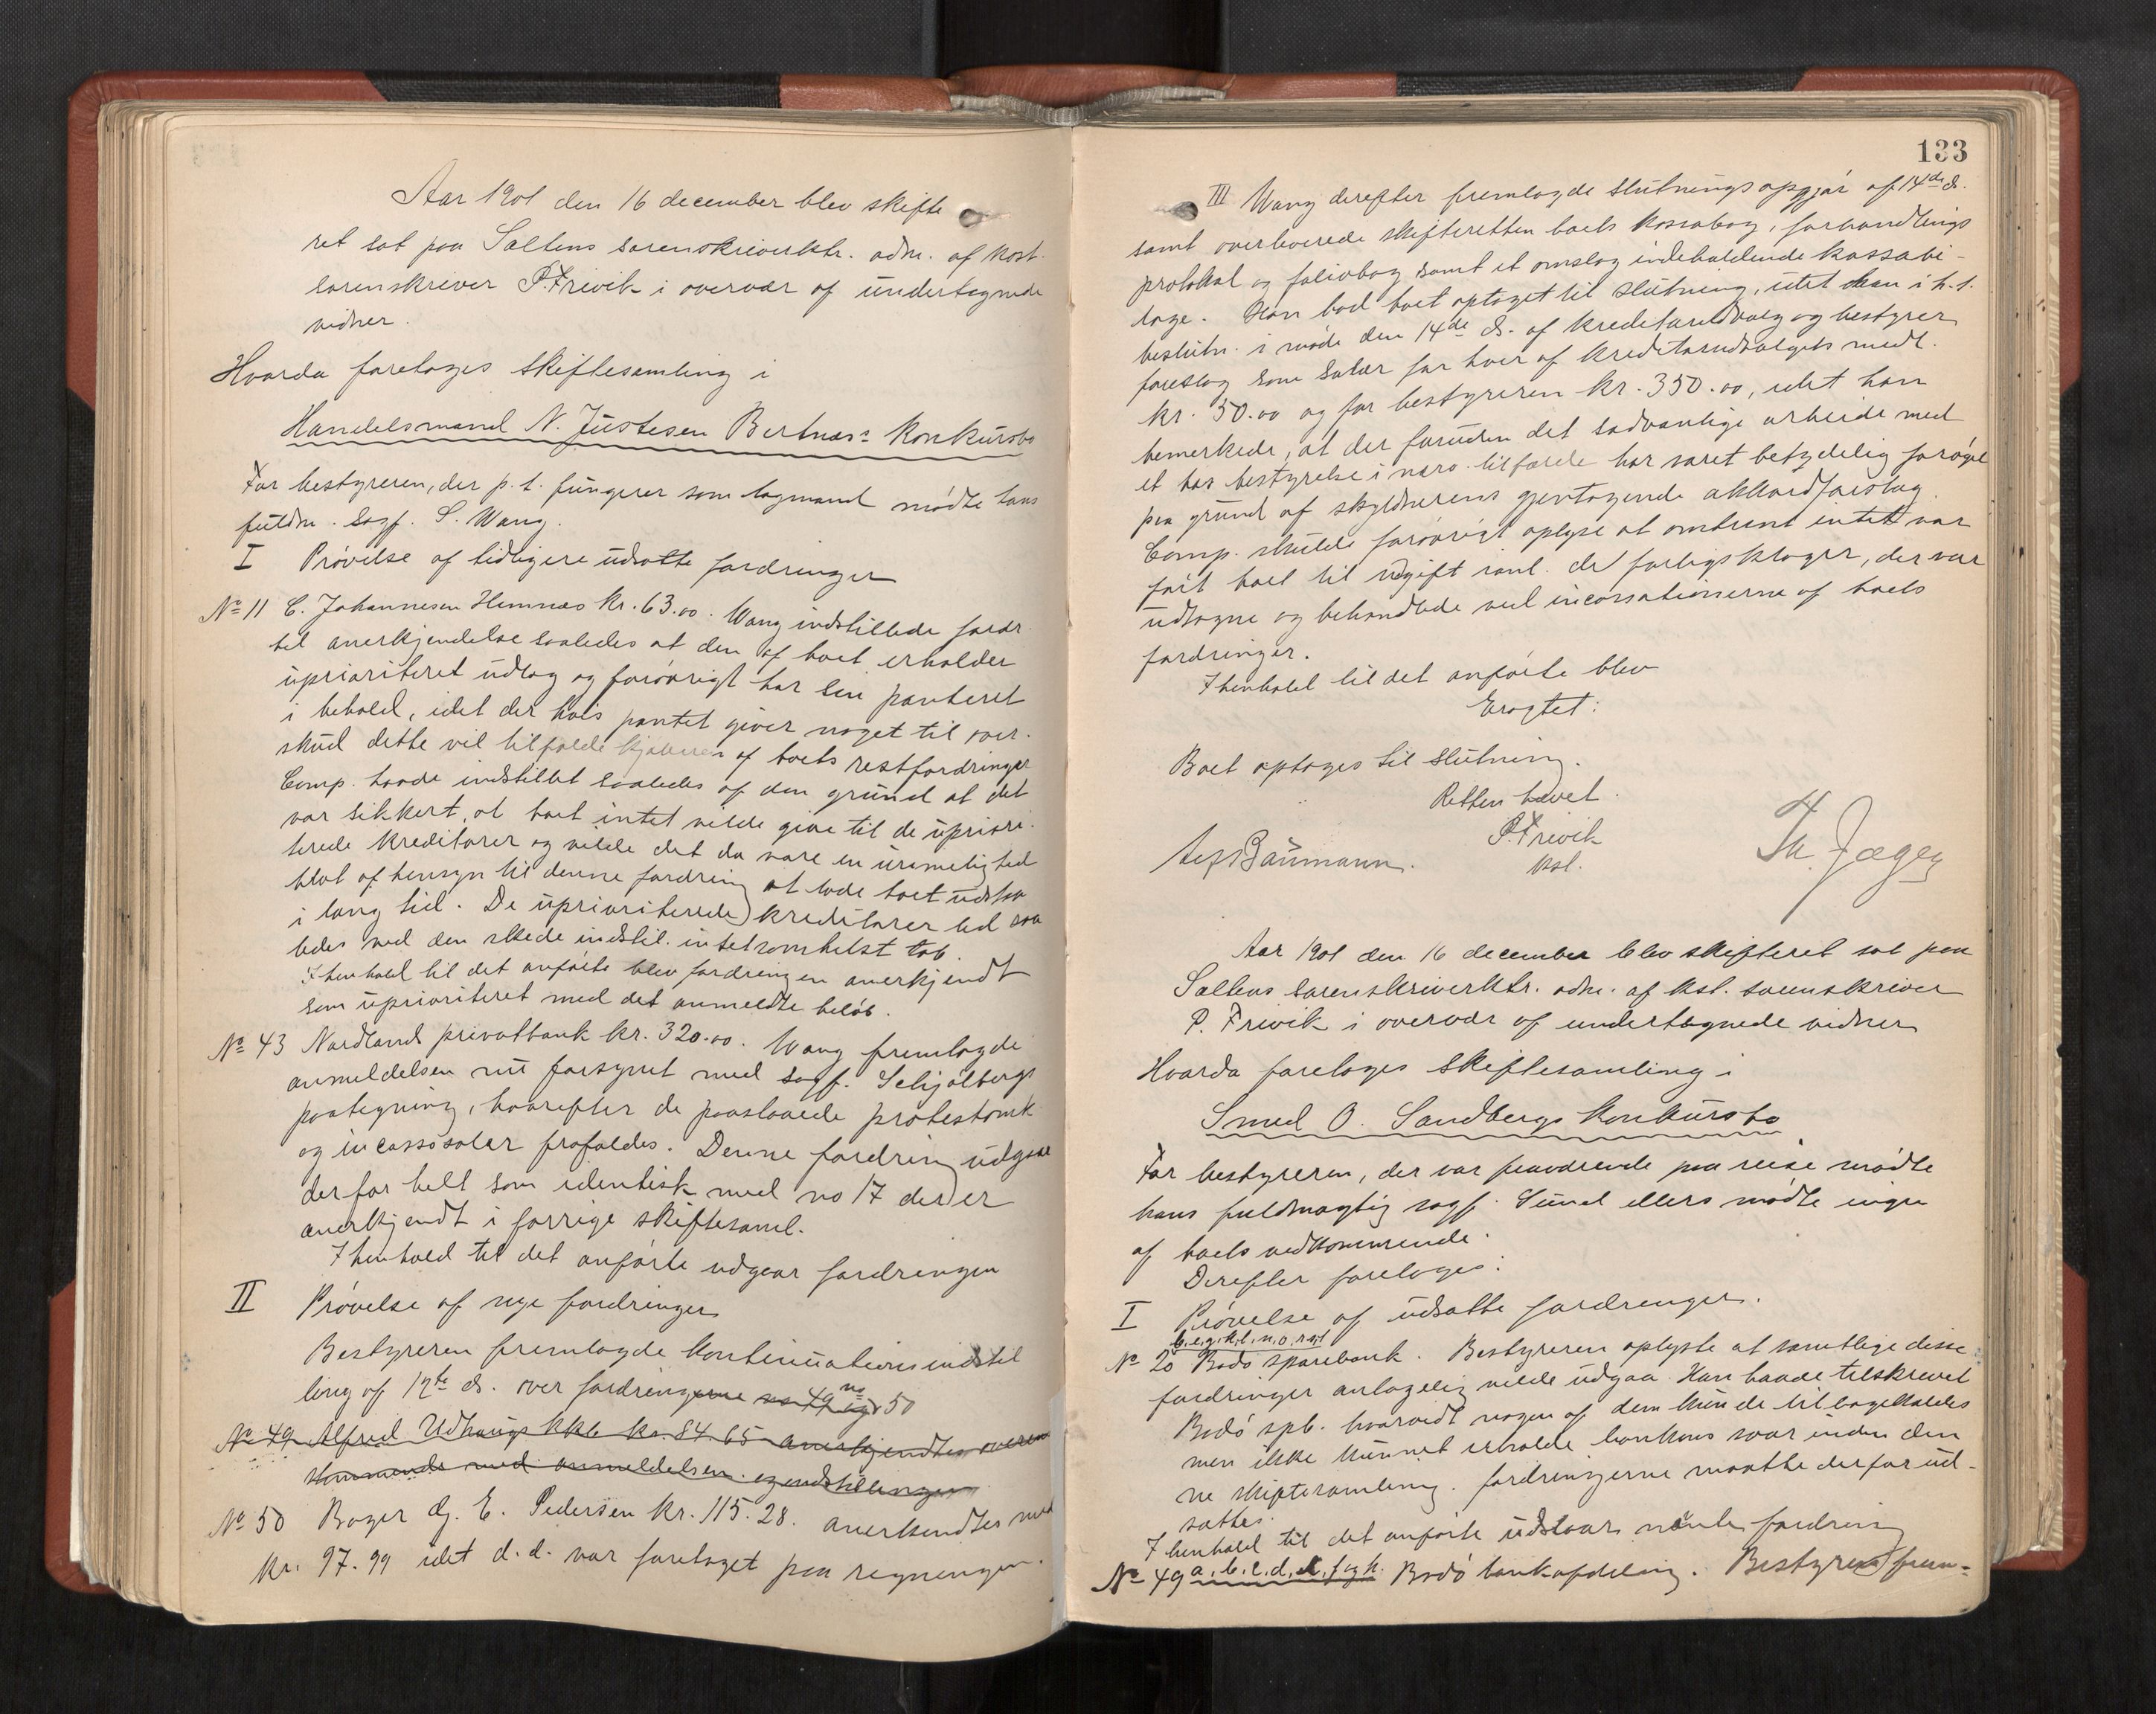 Aar 1901 den 16 december blev skifte
ret sat paa Saltens sorenskriverktr. adm. af konst.
sorenskriver P. Trivik i overvær af undertegnede
vidner.
Hvorda foretoges skiftesamling i
Handelsmand N. Justesen Bertnæs's konkursbo
For bestyreren, der p. t. fungerer som lagmand mødte hans
fuldm. sagf. S. Wang.
I Prøvelse af tidligere udsatte fordringer
No 11 C. Johannesen Hemnæs kr. 63.00. Wang indstillede fordr.
til anerkjendelse saaledes at den af boet erholder
uprioriteret udlæg og forøvrigt har sin panteret
i behold, idet der hvis pantet giver noget til over-
skud dette vil tilfalde kjøberen af boets restfordringer
Comp. havde indstillet saaledes af den grund at det
var sikkert, at boet intet vilde give til de upriori-
terede kreditorer og vilde det da være en urimelighed
blot af hensyn til denne fordring at lade boet udstaa
i lang tid. De uprioriterede kreditorer led saa
ledes ved den skede indstil. intetsomhelst tab.
I henhold til det anførte blev fordringen anerkjendt
som uprioriteret med det anmeldte beløb.
No 43 Nordlands privatbank kr. 320.00. Wang fremlagde
anmeldelsen nu forsynet med sagf. Schjølbergs
paategning, hvorefter de paastaaede protestomk.
og incassosalær frafaldes. Denne fordring udgaar
derfor helt som identisk med no 17 der er
anerkjendt i forrige skiftesaml.
I henhold til det anførte udgaar fordringen
II Prøvelse af nye fordringer
Bestyreren fremlagde kontinuationsindstil
ling af 12te ds. over fordringerne no 49 og no 50
No 49 Alfred Udhaugs kkb kr. 84.65 anerkjendtes overens
stemmende med anmeldelsen og indstillingen
No 50 Bager dg. E. Pedersen kr. 115.28. anerkendtes med
kr. 97.99 idet d. d. var foretaget paa regningen.
133
III Wang derefter fremlagde slutningsopgjør af 14de ds.
samt overleverede skifteretten boets kassabog, forhandlings
protokol og foliobog samt et omslag indeholdende kassabi-
lage. Han bad boet optaget til slutning, idet han i h. t.
beslutn. i møde den 14de ds. af kreditorudvalg og bestyrer
foreslog som salær for hver af kreditorudvalgets medl.
kr. 50.00 og for bestyreren kr. 350.00, idet han
bemerkede, at der foruden det sædvanlige arbeide med
et bos bestyrelse i nærv. tilfælde har været betydelig forøget
paa grund af skyldnerens gjentagende akkordforslag.
Comp. skulde forøvrigt oplyse at omtrent intet var
ført boet til udgift vanl. de forligsklager, der var
udtagne og behandlede ved incassationerne af boets
fordringer.
I henhold til det anførte blev
Eragtet:
Boet optages til slutning.
Retten hævet.
P. Trivik
kst.
Baumann.
Th. Jæger
Aar 1901 den 16 december blev skifteret sat paa
Saltens sorenskriverktr. adm. af kst. sorenskriver
P. Trivik i overvær af undertegnede vidner
Hvorda foretoges skiftesamling i
Smed O. Sandbergs konkursbo
For bestyreren, der var fraværende paa reise mødte
hans fuldmægtig sagf. Sund ellers mødte ingen
af boets vedkommende.
Derefter foretoges:
I Prøvelse af udsatte fordringer.
b. e. g. k. l. n. o. r og t
No 20 Bodø sparebank. Bestyreren oplyste at samtlige disse
fordringer antagelig vilde udgaa. Han havde tilskrevet
Bodø spb. hvorvidt nogen af dem kunde tilbagekaldes
men ikke kunnet erholde bankens svar inden den
ne skiftesamling. fordringerne maatte derfor ud-
sættes.
I henhold til det anførte udstaar nævnte fordring
No 49 a. b. c. d. e. f og h. Bodø bankafdeling. Bestyreren frem-